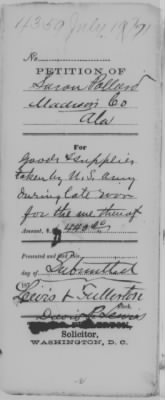 4350 July 1871
No.
PETITION OF
Aaron Pollard
Madison Co
Ala
For
goods & supplies
taken by U.S. Army
during late war
for the use thereof
Amount, $ 449.00
Presented and
day of Submitted
187
Lewis & Fullerton
David Lewis
Solicitor,
WASHINGTON, D. C.